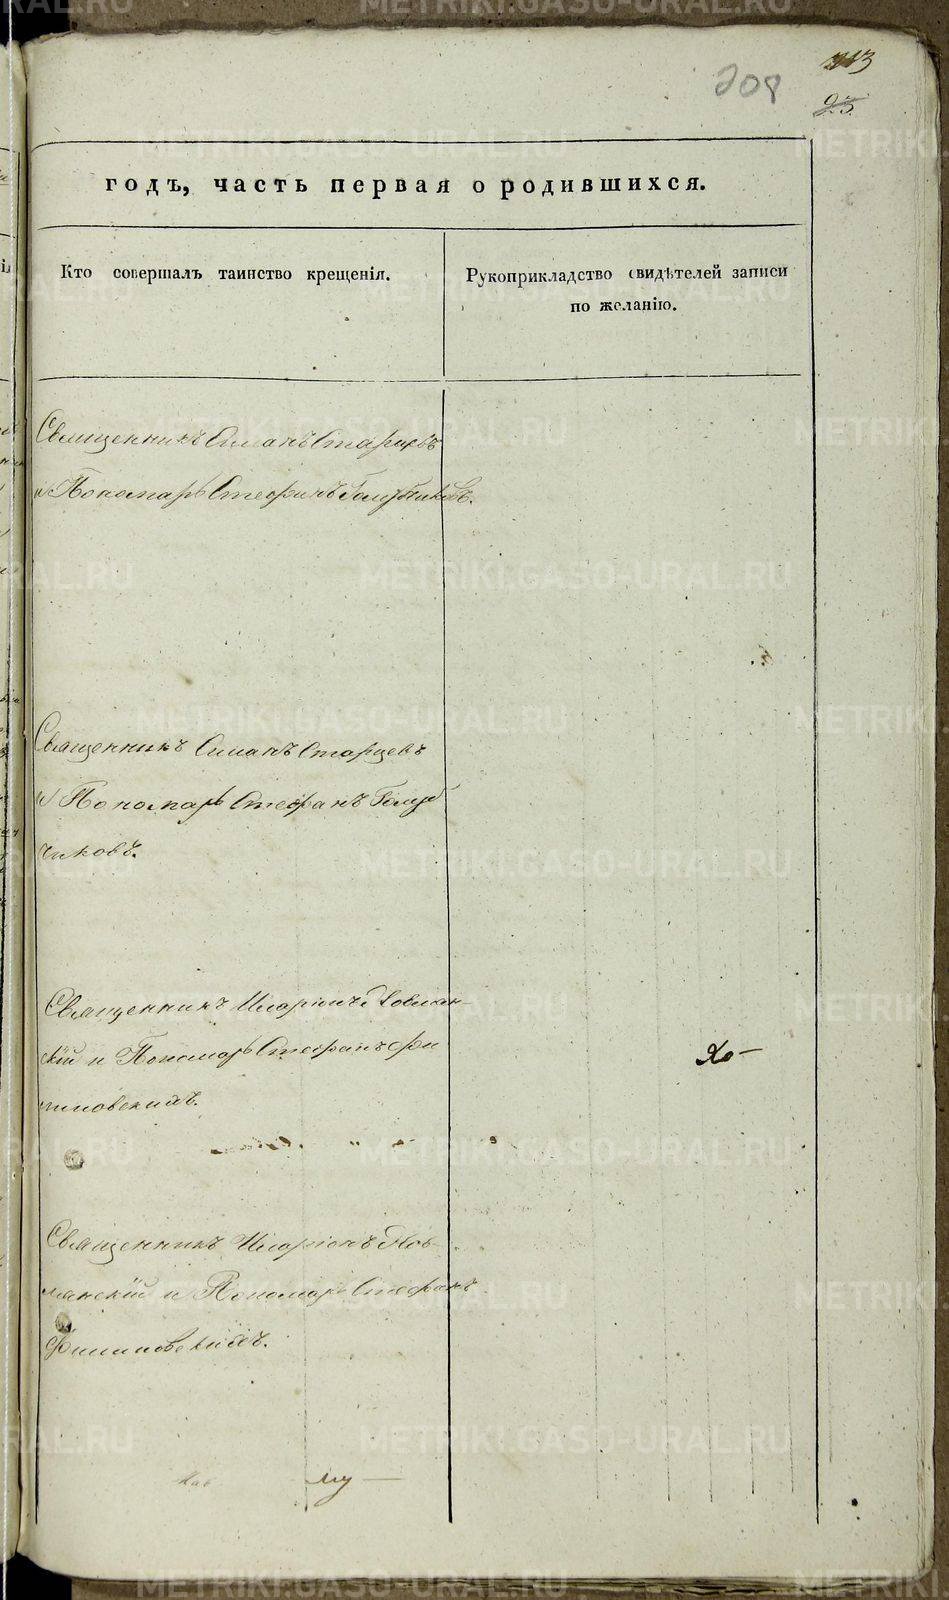 208
213
23.
годъ, часть первая о родившихся.
Кто совершалъ таинство крещенія.
Рукоприкладство свидѣтелей записи
по желанію.
Священникъ Симанъ Старцевъ
и Пономарь Стефанъ Голубчиковъ.
Священникъ Симанъ Старцевъ
и Пономарь Стефанъ Голуб
чиковъ.
Священникъ Иларіонъ
скій и Пономарь Стефанъ Фи
липовскихъ.
Хо
Священникъ Иларіонъ
и Пономарь Стефанъ
Филиповскихъ.
му
METRIKI.GASO-URAL.RU